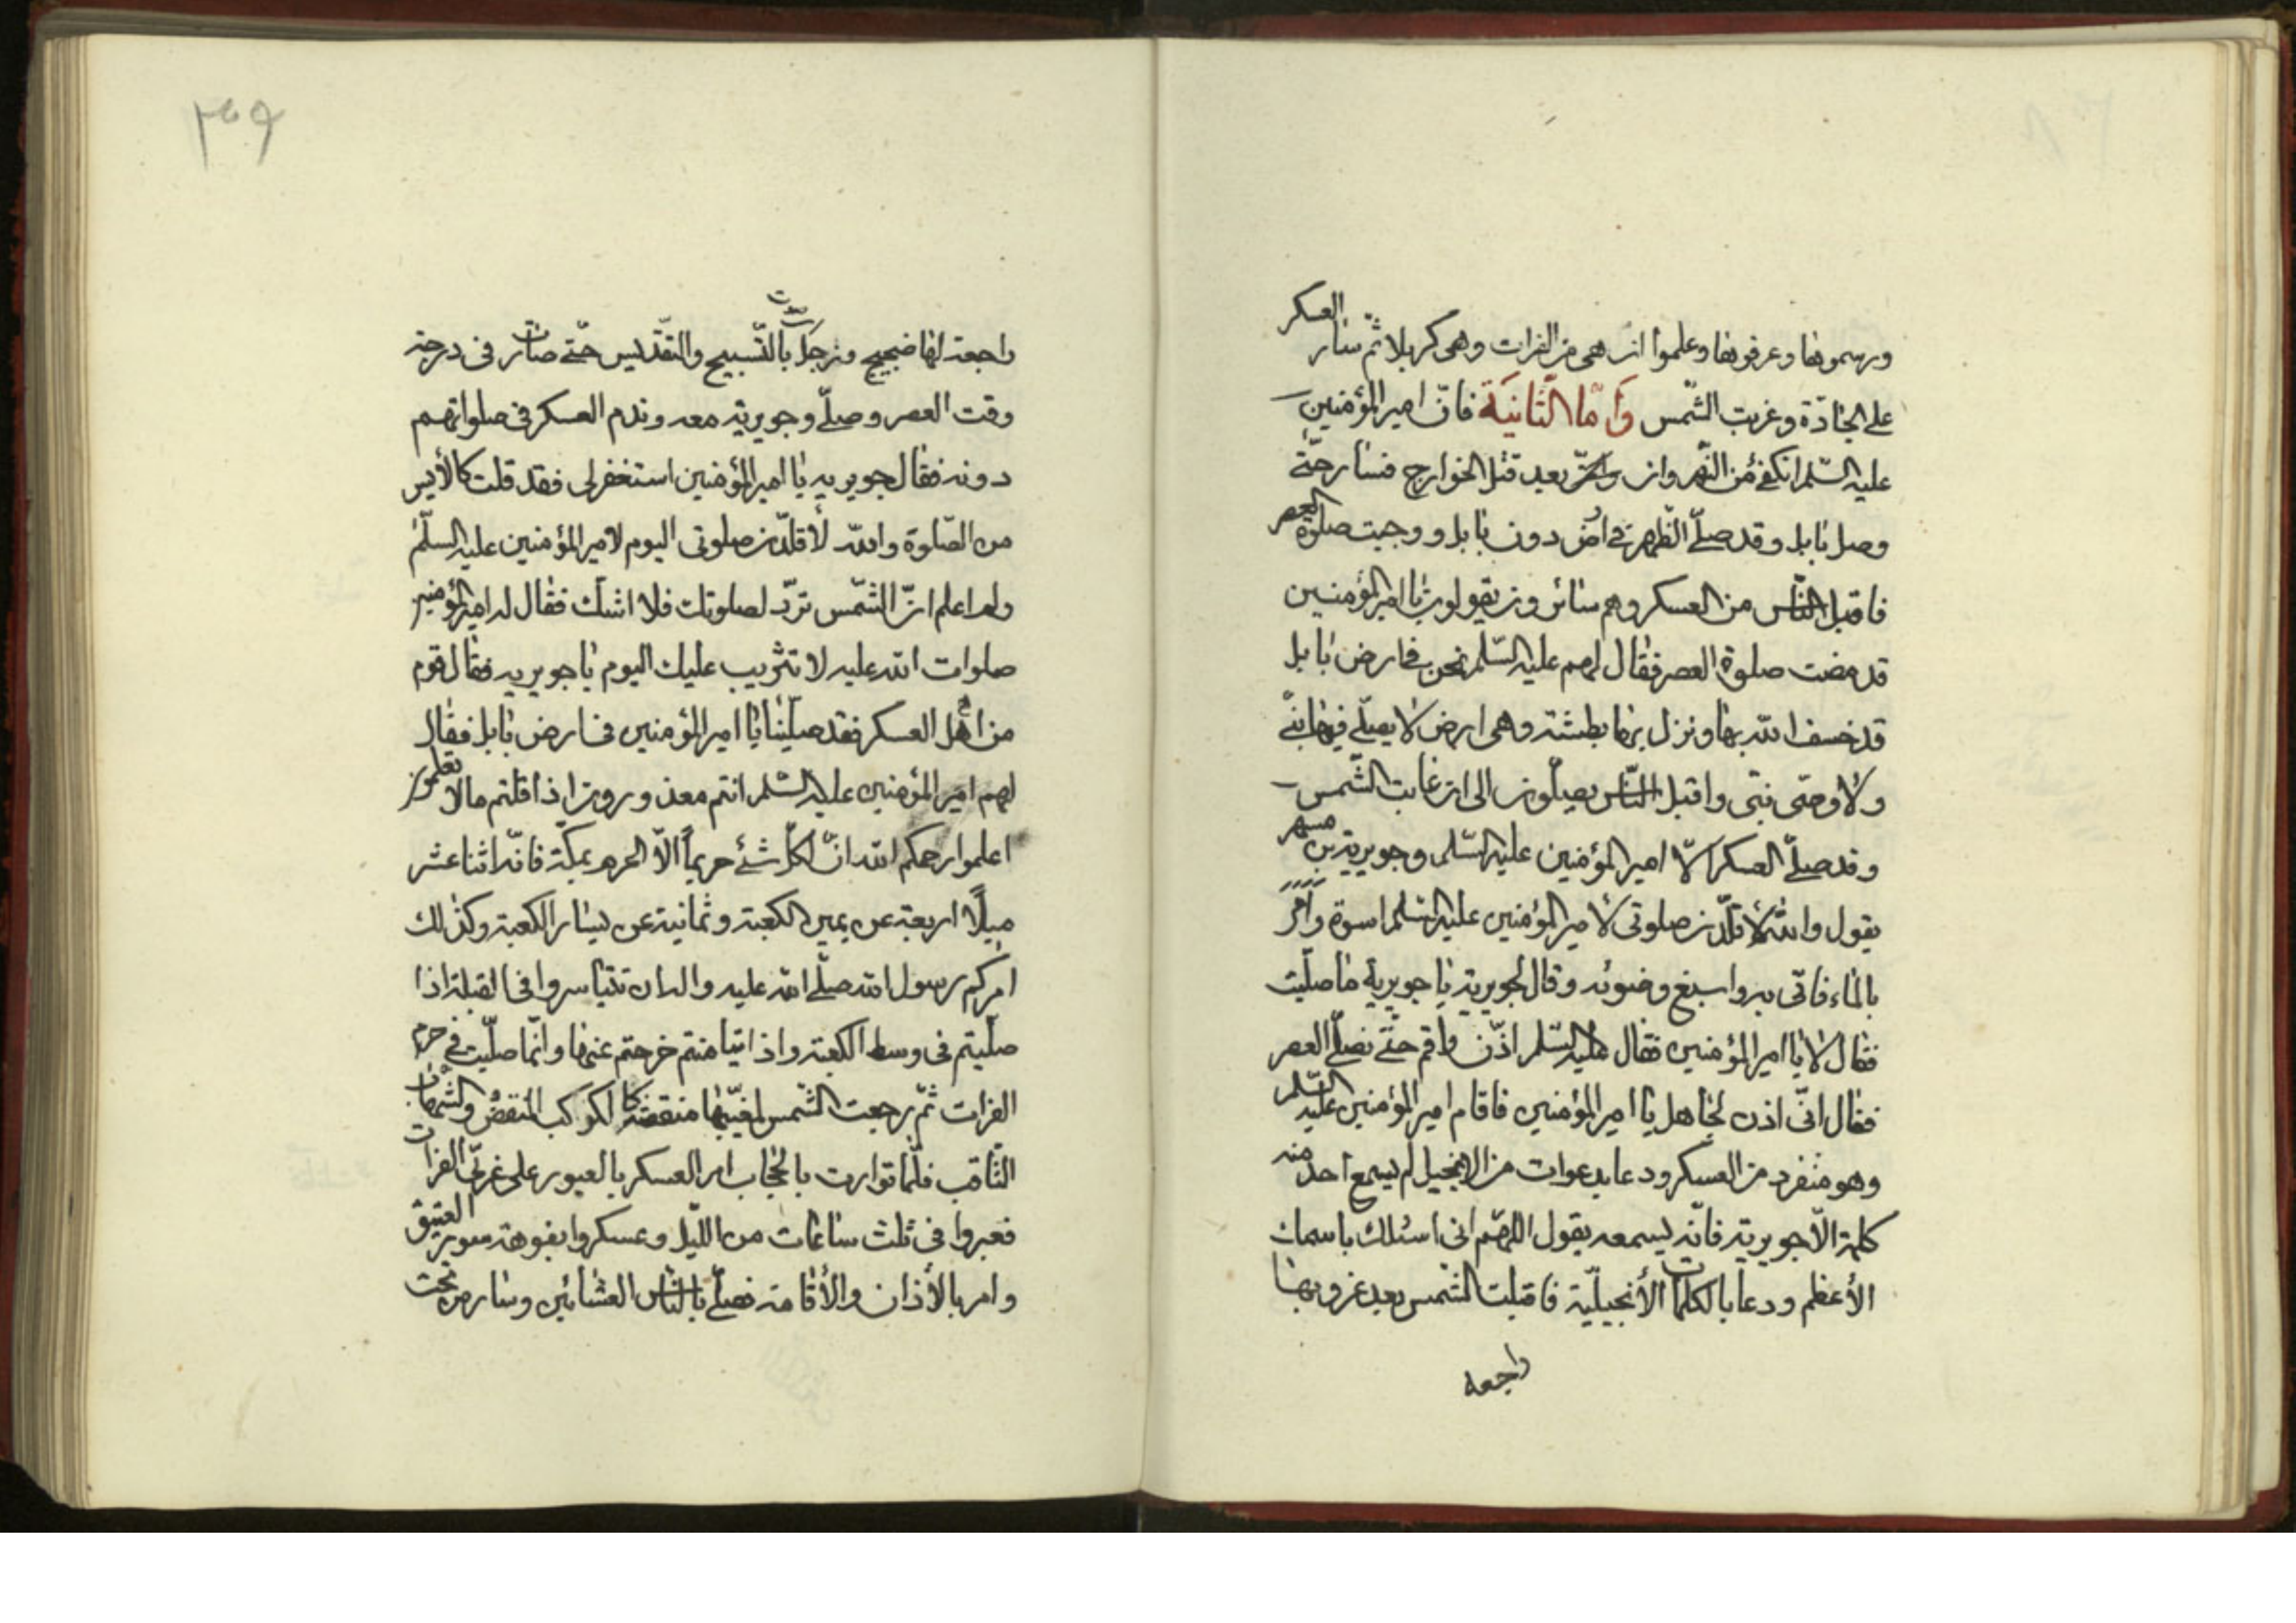 ورسموها وعرفوها وعلموا ان هى من الفرات وهى كربلا ثم سار العسكر
على الجادّة وغربت الشّمس وَأَمّا الثّانِيَة فانّ امير المؤمنين
عليه السّلم انكفئ من النّهروان بعد قتل الخوارج فسار حتّى
وصل بابل وقد صلّى الظّهر فى ارض دون بابل ووجبت صلوة العصر
فاقبل النّاس من العسكر وهم سائرون يقولون يا امير المؤمنين
قد مضت صلوة العصر فقال لهم عليه السّلم نحن فى ارض بابل
قد خسف الله بها ونزل بها بطشته وهى ارض لا يصلّى فيها نبىّ
ولا وصى نبى واقبل النّاس يصلّون الى ان غابت الشّمس
وقد صلّى العسكر الّا امير المؤمنين عليه السّلم وجويرية بن مسهر
يقول والله لأقلّدن صلوتى لأمير المؤمنين عليه السّلم اسوة وأمر
بالماء فاتى به واسبغ وضوئه وقال لجويرية يا جويرية ما صلّيت
فقال لا يا امير المؤمنين فقال عليه السّلم اذّن واقم حتّى نصلّى العصر
فقال انّى اذن لجاهل يا امير المؤمنين فاقام امير المؤمنين عليه السّلم
وهو منفرد من العسكر ودعا بدعوات من الانجيل لم يسمع احد منه
كلمة الّا جويرية فانّه يسمعه يقول اللهمّ انى اسئلك باسمك
الأعظم ودعا بالكلمات الأنجيليّة فاقبلت الشّمس بعد غروبها
راجعه
٣٩
راجعة لها ضجيج وزجل بالتّسبيح والتقّديس حتّى صارت فى درجة
وقت العصر وصلّى وجويرية معه وندم العسكر فى صلواتهم
دونه فقال جويريه يا امير المؤمنين استغفر لى فقد قلت كالأيس
من الصّلوة والله لأقلّدن صلوتى اليوم لامير المؤمنين عليه السلّم
ولم اعلم انّ الشّمس تردّ لصلوتك فلا اشك فقال له امير المؤمنين
صلوات الله عليه لا تثريب عليك اليوم يا جويريه فقال قوم
من اهل العسكر فقد صلّينا يا امير المؤمنين فى ارض بابل فقال
لهم امير المؤمنين عليه السّلم انتم معذورون اذا قلتم ما لا تعلمون
اعلموا رحمكم الله انّ لكلّ شئ حريماً الّا الحرم بمكّة فانّه اثنا عشر
ميلًا اربعة عن يمين الكعبة وثمانية عن يسار الكعبة وكذلك
امركم رسول الله صلّى الله عليه واله ان تتياسروا فى القبلة اذا
صلّيتم فى وسط الكعبة واذا تيامنتم خرجتم عنها وانّما صلّيت فى حرم
الفرات ثمّ رجعت الشّمس لمغيبها منقضّة كا لكوكب المنقضّ والشهاب
الثّاقب فلمّا توارت بالحجاب امر العسكر بالعبور على غربىّ الفرات
فعبروا فى ثلث ساعات من اللّيل وعسكروا بفوهة العتيق
وامر بالأذان والأقامة فصلّى بالنّاس العشائين وسار من تحت